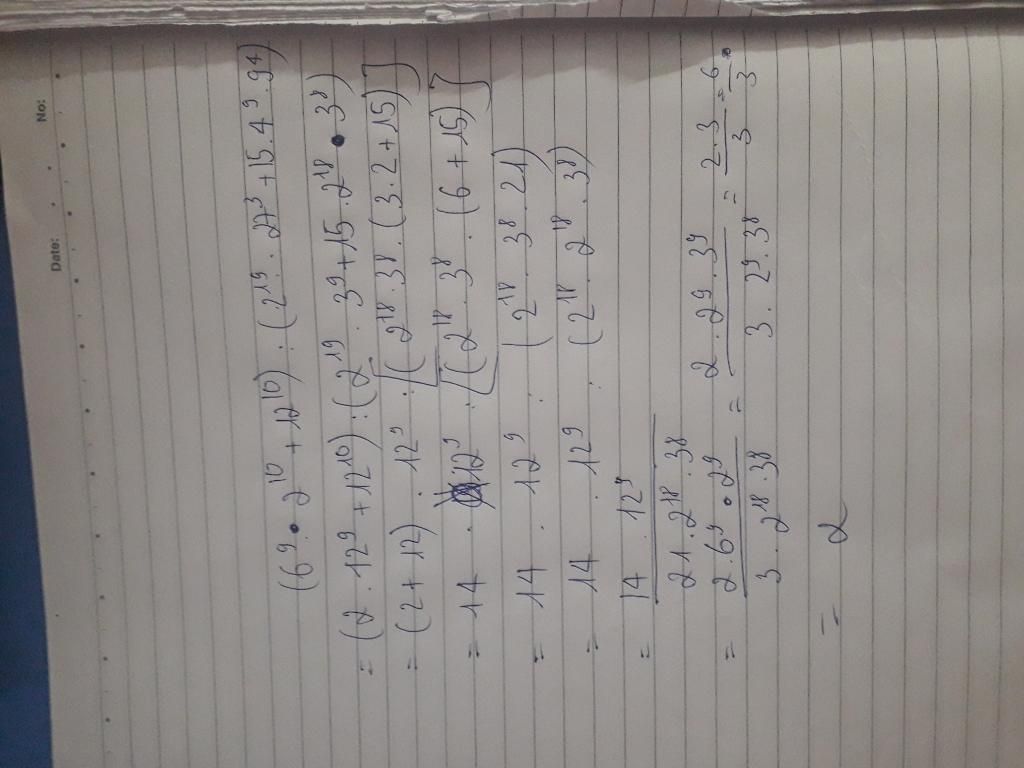 No:
Date:
(6⁹ . 2¹⁰ + 12¹⁰) : (2¹⁹ . 27³ + 15 . 4⁹ . 9⁴)
= (2 . 12⁹ + 12¹⁰) : (2¹⁹ . 3⁹ + 15 . 2¹⁸ . 3⁸)
= (2 + 12) . 12⁹ : [(2¹⁸ . 3⁸ . (3 . 2 + 15)]
= 14 . 12⁹ : [(2¹⁸ . 3⁸ . (6 + 15)]
= 14 . 12⁹ : (2¹⁸ . 3⁸ . 21)
= 14 . 12⁹ : (2¹⁸ . 2¹⁸ . 3⁸)
= 14 . 12⁹ / 21 . 2¹⁸ . 3⁸
= 2 . 6⁹ . 2⁹ / 3 . 2¹⁸ . 3⁸ = 2 . 2⁹ . 3⁹ / 3 . 2⁹ . 3⁸ = 2 . 3 / 3 = 6 / 3
= 2